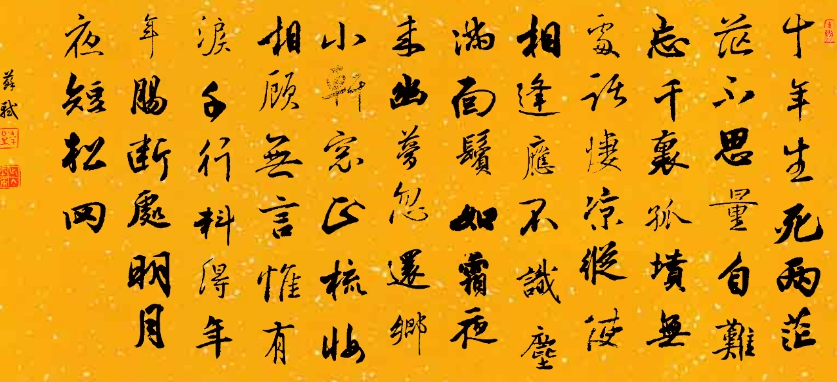 十年生死兩茫
茫不思量自難
忘千裏孤墳無
處話悽涼縱使
相逢應不識塵
滿面鬢如霜夜
來幽夢忽還鄉
小軒窓正梳妝
相顧無言惟有
淚千行料得年
年腸斷處明月
夜短松岡
蘇軾